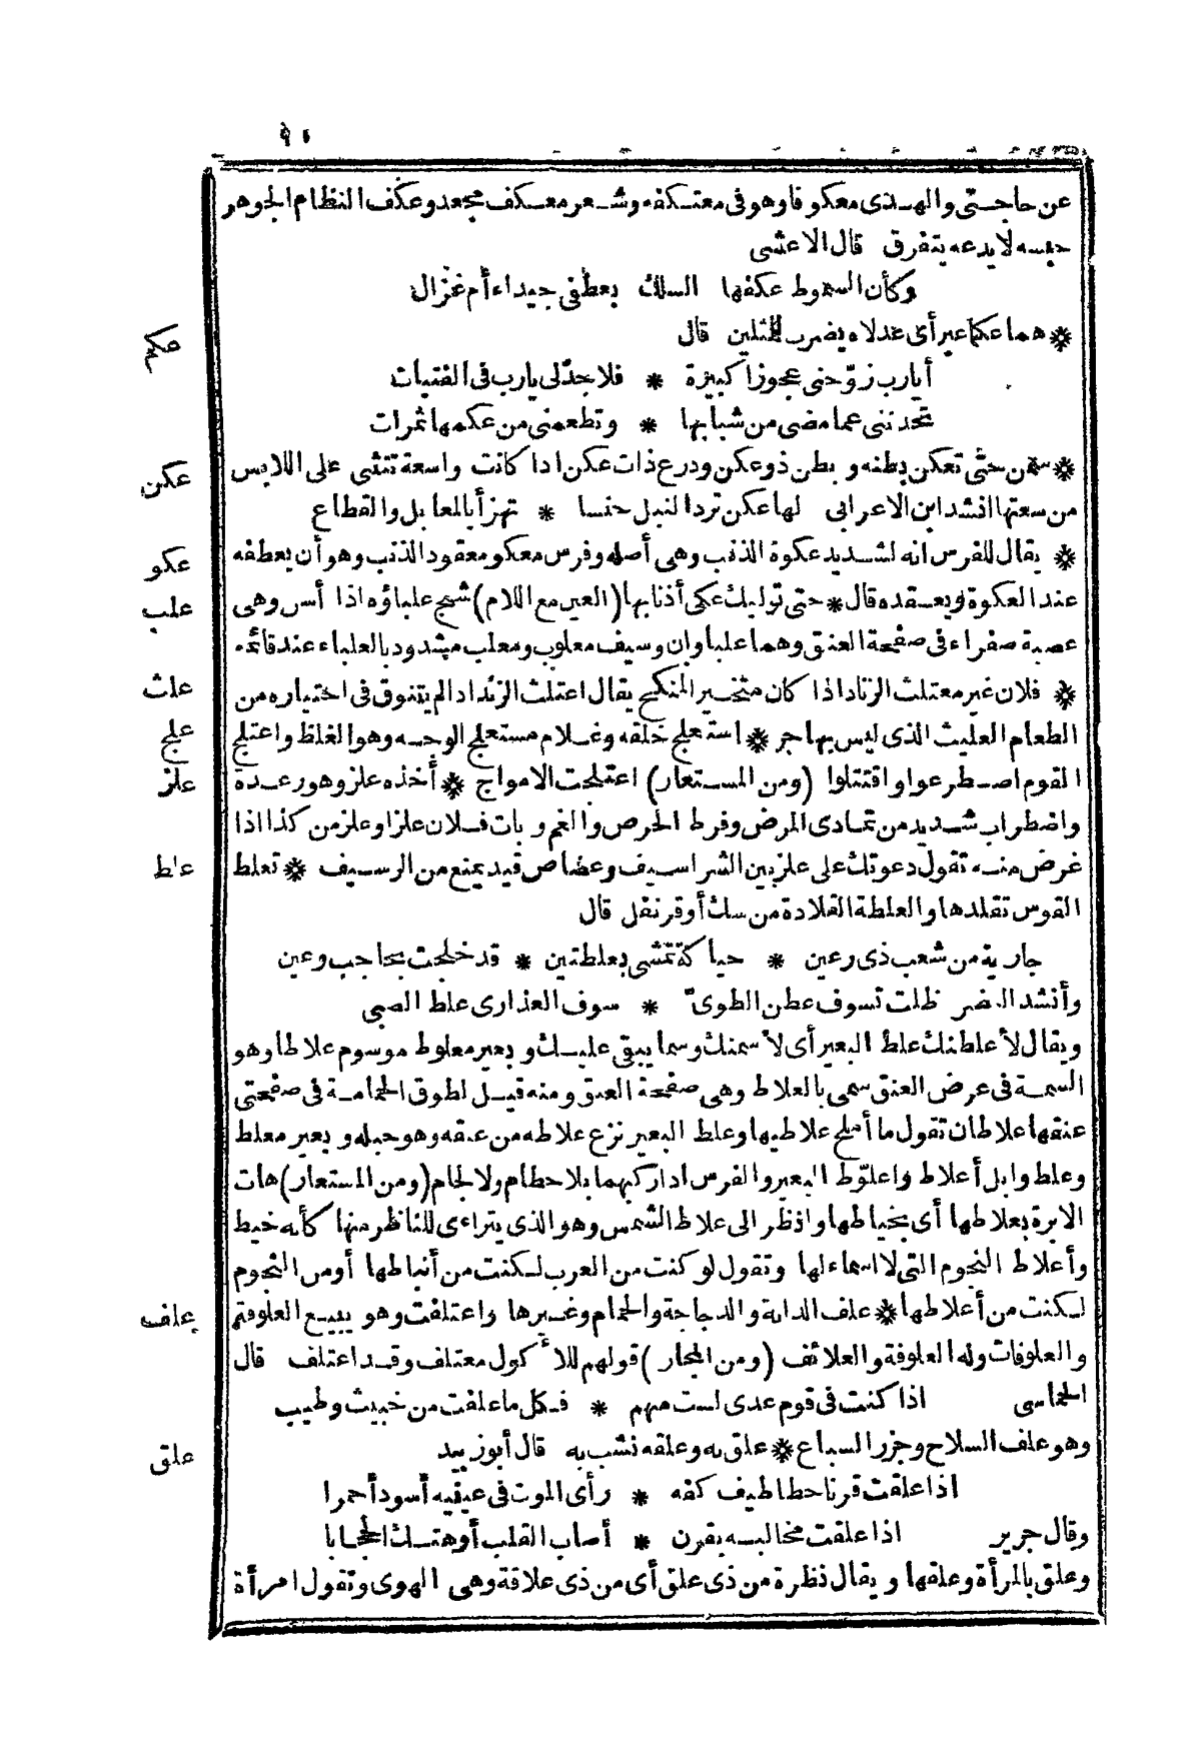 ٩١
عن حاجتي والهدى معكوفا وهو في معتكفه وشعر معكف مجعد وعكف النظام الجوهر
حبسه لا يدعه يتفرق قال الاعشى
وكأن السموط عكفها السلك بعطفي جيداء أم غزال
عكم
❋ هما عكما عير أي عدلاه يضرب للمثلين قال
أيا رب زوّجني عجوزا كبيرة ❋ فلا جدّ لي يارب في الفتيات
تحدثني عما مضى من شبابها ❋ وتطعمني من عكمها تمرات
عكن
❋ سمن حتى تعكن بطنه وبطن ذو عكن ودرع ذات عكن اذا كانت واسعة تنثني على اللابس
من سعتها انشد ابن الاعرابي لها عكن ترد النبل خنسا ❋ تهزأ بالمعابل والقطاع
عكو
❋ يقال للفرس انه لشديد عكوة الذنب وهي أصله وفرس معكو معقود الذنب وهو أن يعطفه
علب
عند العكوة ويعقده قال ❋ حتى توليك عكى أذنابها (العين مع اللام) شنج علباؤه اذا أسن وهي
عصبة صفراء في صفحة العنق وهما علباوان وسيف معلوب ومعلب مشدود بالعلباء عند قائمه
علث
❋ فلان غير معتلث الزناد اذا كان متخير المنكح يقال اعتلث الزناد اذا لم يتنوق في اختياره من
علج
الطعام العليث الذي ليس بهاجر ❋ استعلج خلقه وغلام مستعلج الوجه وهو الغلظ واعتلج
علز
القوم اصطرعوا واقتتلوا (ومن المستعار) اعتلجت الامواج ❋ أخذه علز وهو رعدة
واضطراب شديد من تمادى المرض وفرط الحرص والغم وبات فلان علزا وعلز من كذا اذا
علط
غرض منه تقول دعوتك على علز بين الشراسيف وعضاض قيد يمنع من الرسيف ❋ تعلط
القوس تقلدها والعلطة القلادة من سك أو قرنفل قال
جارية من شعب ذي رعين ❋ حياكة تمشي بعلطتين ❋ قد خلجت بحاجب وعين
وأنشد النضر ظلت تسوف عطن الطوىّ ❋ سوف العذارى علط الصبي
ويقال لأعلطنك علط البعير أي لأسمنك وسما يبقى عليك وبعير معلوط موسوم علاطا وهو
السمة في عرض العنق سمى بالعلاط وهي صفحة العنق ومنه قيل لطوق الحمامة في صفحتي
عنقها علاطان تقول ما أملح علاطيها وعلط البعير نزع علاطه من عنقه وهو حبله وبعير معلط
وعلط وابل أعلاط واعلوّط البعير والفرس اذا ركبهما بلا خطام ولا لجام (ومن المستعار) هات
الابرة بعلاطها أي بخياطها وانظر الى علاط الشمس وهو الذي يتراءى للناظر منها كأنه خيط
وأعلاط النجوم التي لا اسماء لها وتقول لو كنت من العرب لكنت من أنباطها أو من النجوم
علف
لكنت من أعلاطها ❋ علف الدابة والدجاجة والحمام وغيرها واعتلفت وهو يبيع العلوفة
والعلوفات وله العلوفة والعلائف (ومن المجاز) قولهم للأكول معتلف وقد اعتلف قال
الحماسي اذا كنت في قوم عدى لست منهم ❋ فكل ما علفت من خبيث وطيب
علق
وهو علف السلاح وجزر السباع ❋ علق به وعلقه نشب به قال أبو زبيد
اذا علقت قرنا خطاطيف كفه ❋ رأى الموت في عينيه أسود أحمرا
وقال جرير اذا علقت مخالبه بقرن ❋ أصاب القلب أو هتك الحجابا
وعلق بالمرأة وعلقها ويقال نظرة من ذي علق أي من ذي علاقة وهي الهوى وتقول امرأة